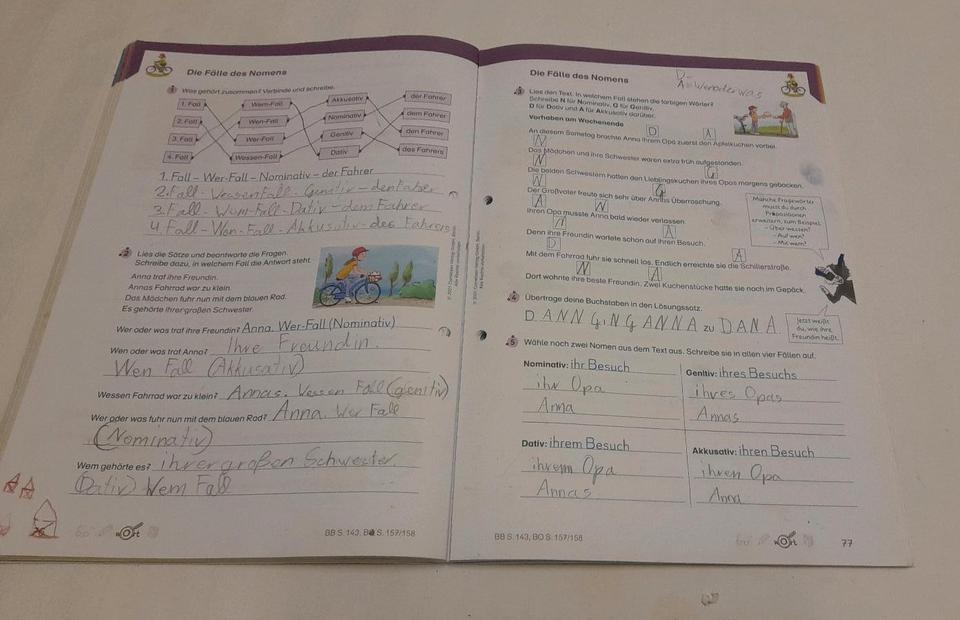 Die Fälle des Nomens
1 Was gehört zusammen? Verbinde und schreibe.
1. Fall Wem-Fall Akkusativ der Fahrer
2. Fall Wen-Fall Nominativ dem Fahrer
3. Fall Wer-Fall Genitiv den Fahrer
4. Fall Wessen-Fall Dativ des Fahrers
1. Fall – Wer-Fall – Nominativ – der Fahrer
2. Fall - Wessen Fall - Genitiv - den Faher
3. Fall - Wem-Falt - Dativ - dem Fahrer
4. Fall - Wen - Fall - Akkusativ - des Fahrers
2 Lies die Sätze und beantworte die Fragen.
Schreibe dazu, in welchem Fall die Antwort steht.
Anna traf ihre Freundin.
Annas Fahrrad war zu klein.
Das Mädchen fuhr nun mit dem blauen Rad.
Es gehörte ihrer großen Schwester.
Wer oder was traf ihre Freundin? Anna, Wer-Fall (Nominativ)
Wen oder was traf Anna? Ihre Freundin.
Wen Fall (Akkusativ)
Wessen Fahrrad war zu klein? Annas. Wessen Fall (genitiv)
Wer oder was fuhr nun mit dem blauen Rad? Anna. Wer Fall
(Nominativ)
Wem gehörte es? ihrer großen Schwester.
(Dativ) Wem Fall
BB S. 143, BO S. 157/158
Die Fälle des Nomens
D
A = Wen oder was
3 Lies den Text. In welchem Fall stehen die farbigen Wörter?
Schreibe N für Nominativ, G für Genitiv,
D für Dativ und A für Akkusativ darüber.
Vorhaben am Wochenende
D A
An diesem Samstag brachte Anna ihrem Opa zuerst den Apfelkuchen vorbei.
N
Das Mädchen und ihre Schwester waren extra früh aufgestanden.
N G
Die beiden Schwestern hatten den Lieblingskuchen ihres Opas morgens gebacken.
N G
Der Großvater freute sich sehr über Annas Überraschung.
A N
Ihren Opa musste Anna bald wieder verlassen.
N A
Denn ihre Freundin wartete schon auf ihren Besuch.
D A
Mit dem Fahrrad fuhr sie schnell los. Endlich erreichte sie die Schillerstraße.
N A
Dort wohnte ihre beste Freundin. Zwei Kuchenstücke hatte sie noch im Gepäck.
Manche Fragewörter
musst du durch
Präpositionen
erweitern, zum Beispiel:
– Über wessen?
– Auf wen?
– Mit wem?
4 Übertrage deine Buchstaben in den Lösungssatz.
D A N N G I N G A N N A zu D A N A.
Jetzt weißt
du, wie ihre
Freundin heißt.
5 Wähle noch zwei Nomen aus dem Text aus. Schreibe sie in allen vier Fällen auf.
Nominativ: ihr Besuch
ihr Opa
Anna
Genitiv: ihres Besuchs
ihres Opas
Annas
Dativ: ihrem Besuch
ihrem Opa
Annas
Akkusativ: ihren Besuch
ihren Opa
Anna
BB S. 143, BO S. 157/158
77